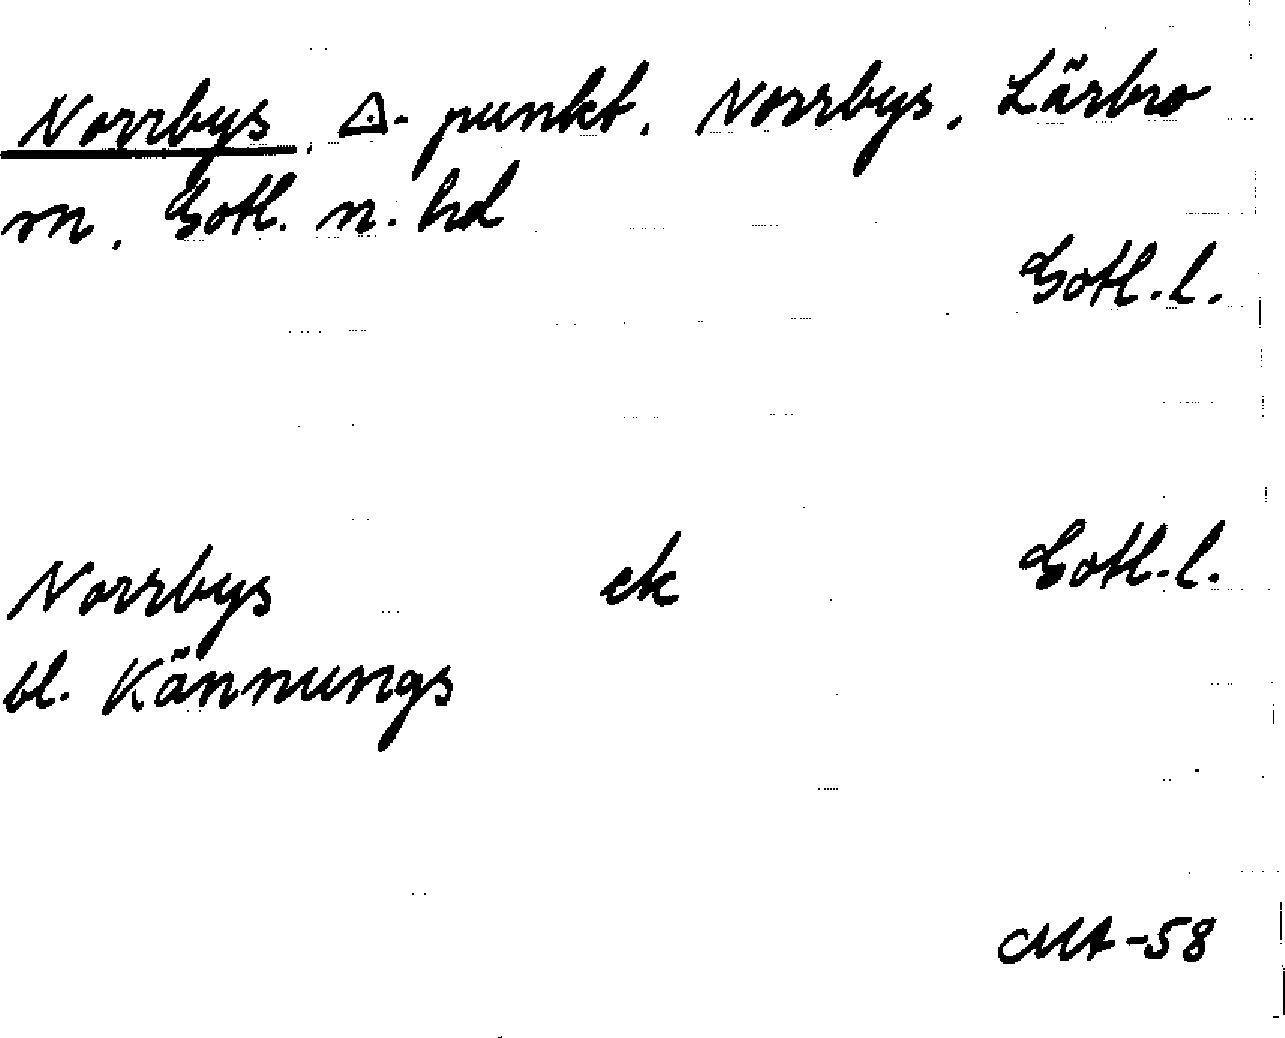 Norrbys, △-punkt, Norrbys, Lärbro
sn, Gotl. n. hd
Gotl.l.
Norrbys ek Gotl.l.
bl. Kännungs
-58